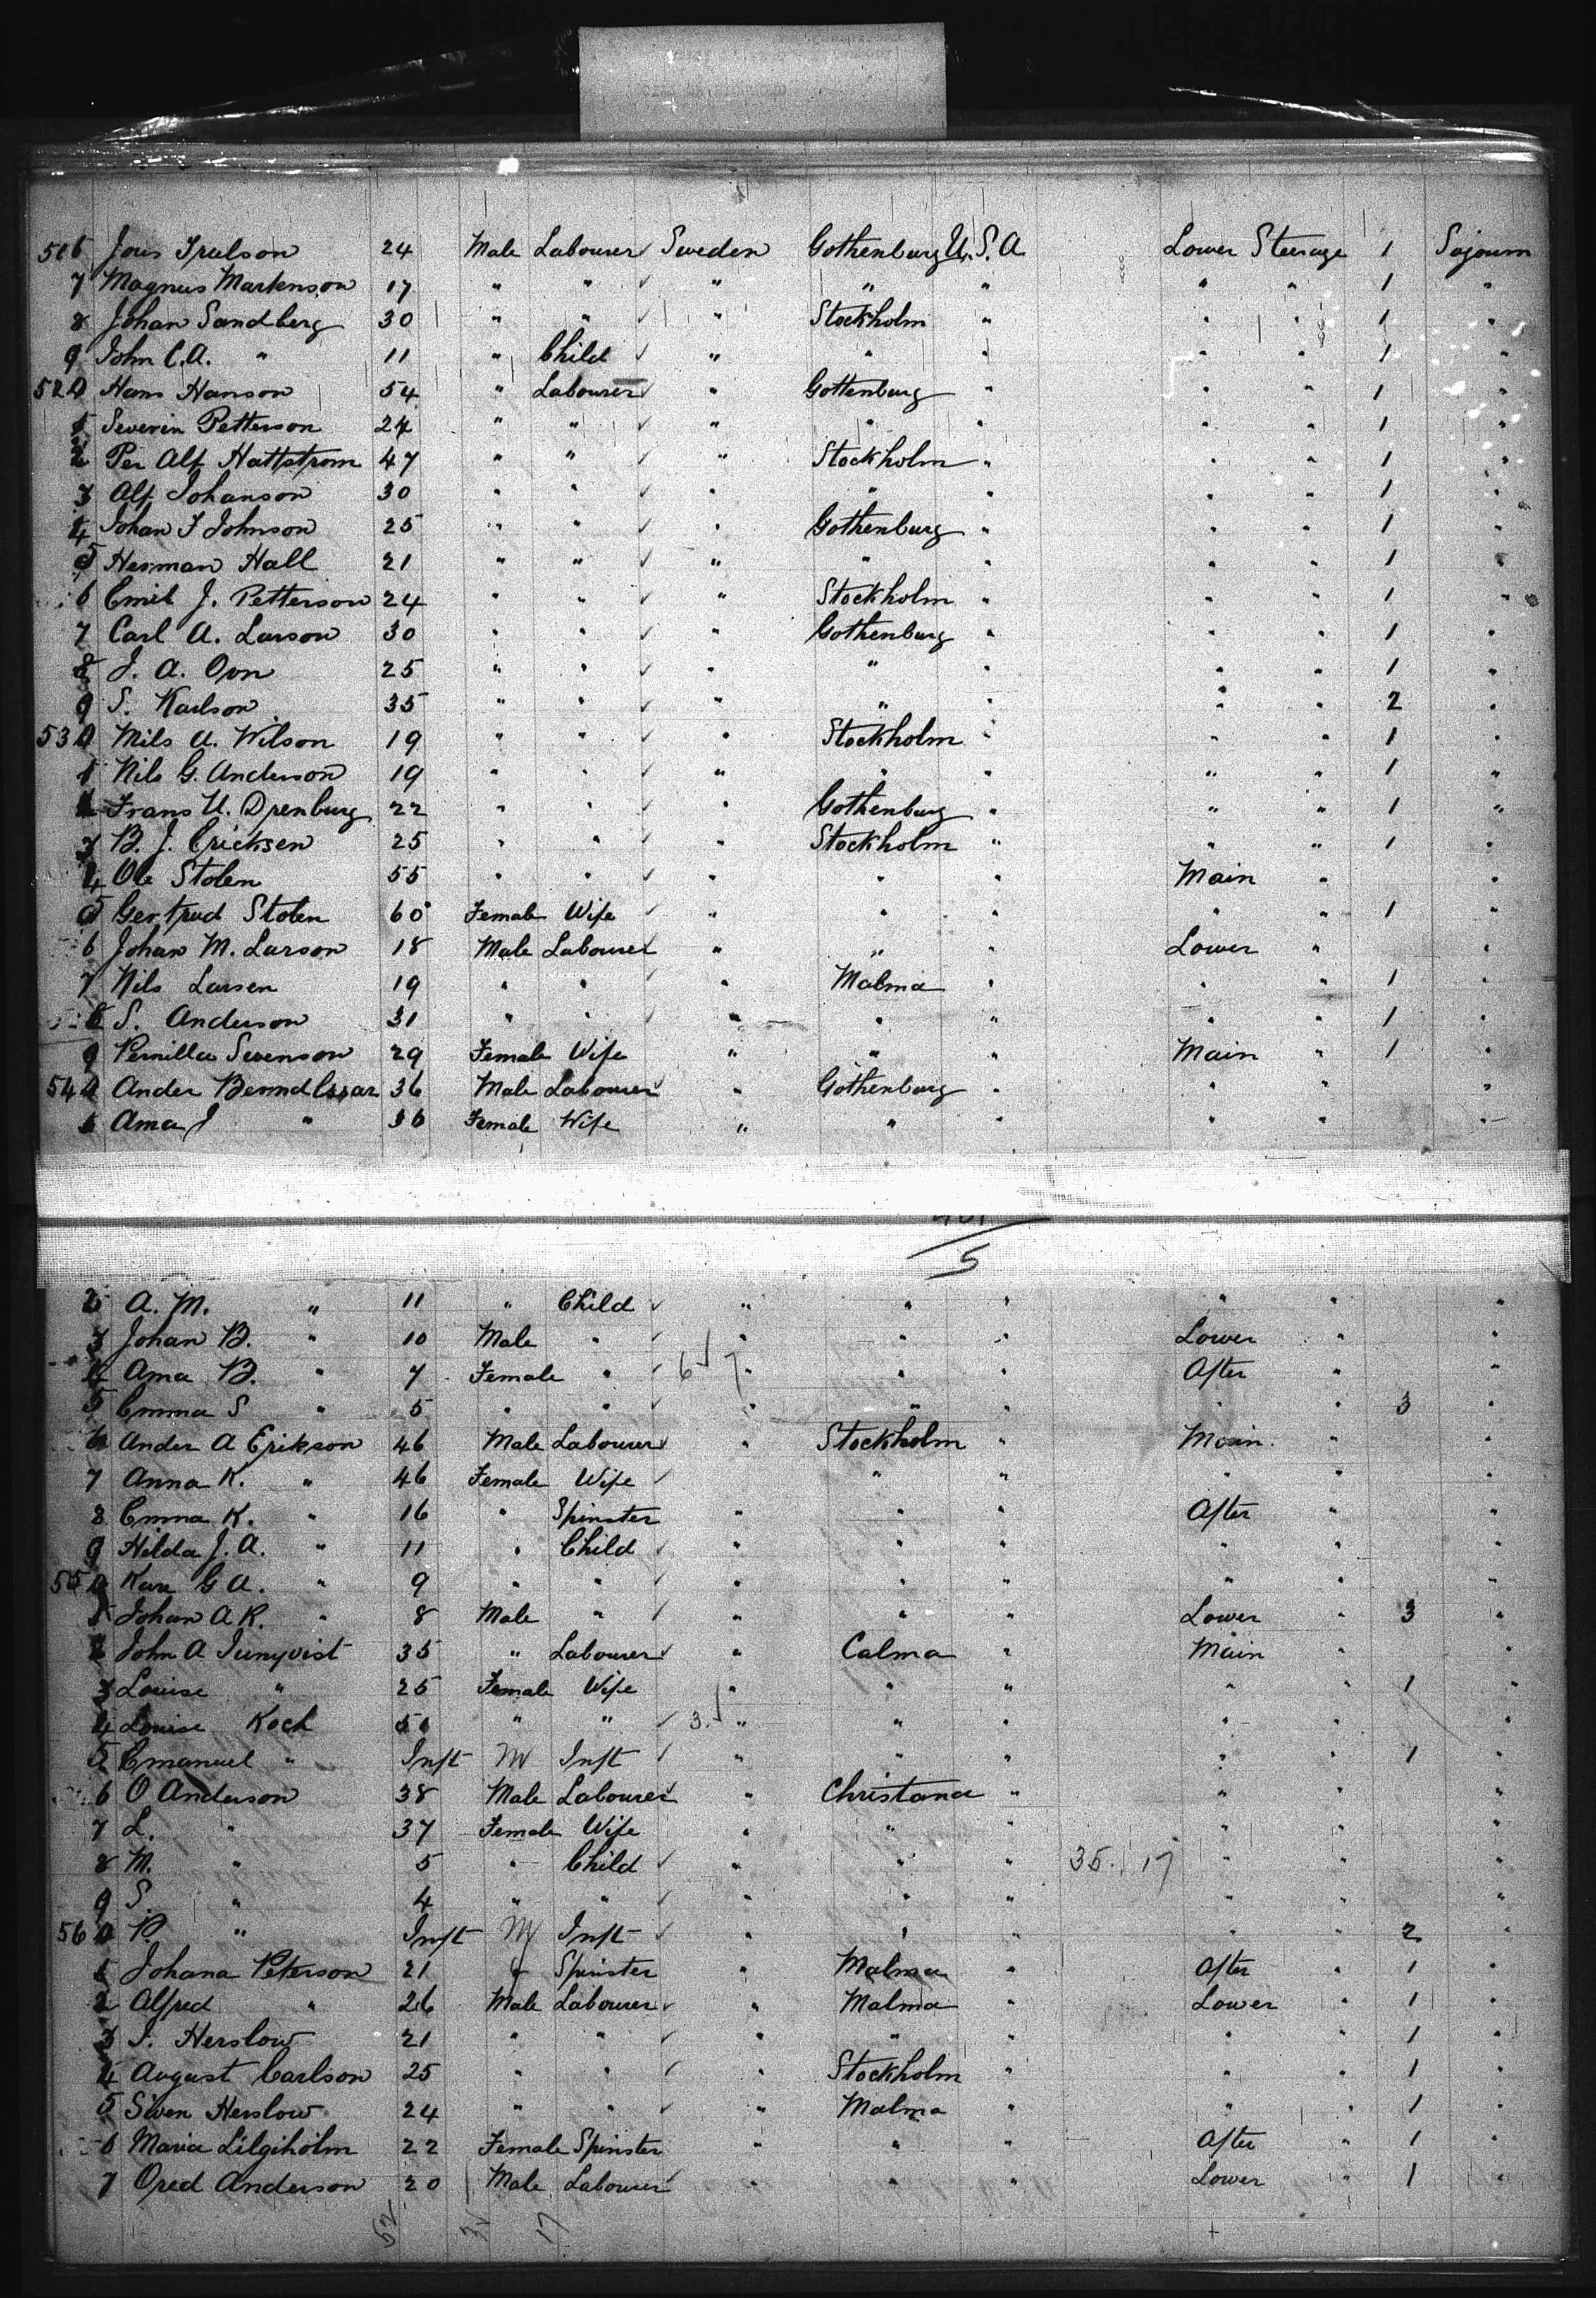 516 Jons Trulson 24 Male Labourer Sweden Gothenburg U.S.A Lower Steerage 1 Sojourn
7 Magnus Martenson 17 " " " " " " " 1 "
8 Johan Sandberg 30 " " " Stockholm " " " 1 "
9 John C.A. " 11 " Child " " " " " 1 "
520 Hans Hanson 54 " Labourer " Gottenburg " " " 1 "
1 Severin Petterson 24 " " " " " " " 1 "
2 Per Alf Hattstrom 47 " " " Stockholm " " " 1 "
3 Alf Johanson 30 " " " " " " " 1 "
4 Johan F Johnson 25 " " " Gothenburg " " " 1 "
5 Herman Hall 21 " " " " " " " 1 "
6 Emil J. Petterson 24 " " " Stockholm " " " 1 "
7 Carl A. Larson 30 " " " Gothenburg " " " 1 "
8 J. A. Orn 25 " " " " " " " 1 "
9 S. Karlson 35 " " " " " " " 2 "
530 Mils A. Wilson 19 " " " Stockholm " " " 1 "
1 Nils G. Anderson 19 " " " " " " " 1 "
2 Frans U. Drenburg 22 " " " Gothenburg " " " 1 "
3 B. J. Ericksen 25 " " " Stockholm " " " 1 "
4 Ole Stolen 55 " " " " " Main "
5 Gertrud Stolen 60 Female Wife " " " " " 1 "
6 Johan M. Larson 18 Male Labourer " " " Lower " "
7 Nils Larsen 19 " " " Malma " " " 1 "
8 S. Anderson 31 " " " " " " " 1 "
9 Pernilla Swenson 29 Female Wife " " " Main " 1 "
540 Ander 36 Male Labourer " Gothenburg " " " "
1 Ama J " 36 Female Wife " " " " " "
5
2 A. M. " 11 " Child " " " " "
3 Johan B. " 10 Male " " " " Lower " "
4 Ama B. " 7 Female " 6 " " " After " "
5 Emma S " 5 " " " " " " 3 "
6 Ander A Erikson 46 Male Labourer " Stockholm " Main " "
7 Anna K. " 46 Female Wife " " " " "
8 Emma K. " 16 " Spinster " " " After " "
9 Hilda J. A. " 11 " Child " " " " " "
550 Kare G A. " 9 " " " " " " " "
1 Johan A K. " 8 Male " " " " Lower " 3 "
2 John A Junqvist 35 " Labourer " Calma " Main " "
3 Louise " 25 Female Wife " " " " " 1 "
4 Louise Koch 51 " " 3. " " " " " "
5 Emanuel " Inft M Inft " " " " " 1 "
6 O Anderson 38 Male Labourer " Christana " " " "
7 L. " 37 Female Wife " " " " " "
8 M. " 5 " Child " " " 35. 17 " " "
9 S. " 4 " " " " " "
560 P. " Inft M Inft " " " " " 2 "
1 Johana Peterson 21 Spinster " Malma " After " 1 "
2 Alfred " 26 Male Labourer " Malma " Lower " 1 "
3 J. Herslow 21 " " " " " " " 1 "
4 August Carlson 25 " " " Stockholm " " " 1 "
5 Swen Herslow 24 " " " Malma " " " 1 "
6 Maria Lilgiholm 22 Female Spinster " " " After " 1 "
7 Ored Anderson 20 Male Labourer " " " Lower " 1 "
17